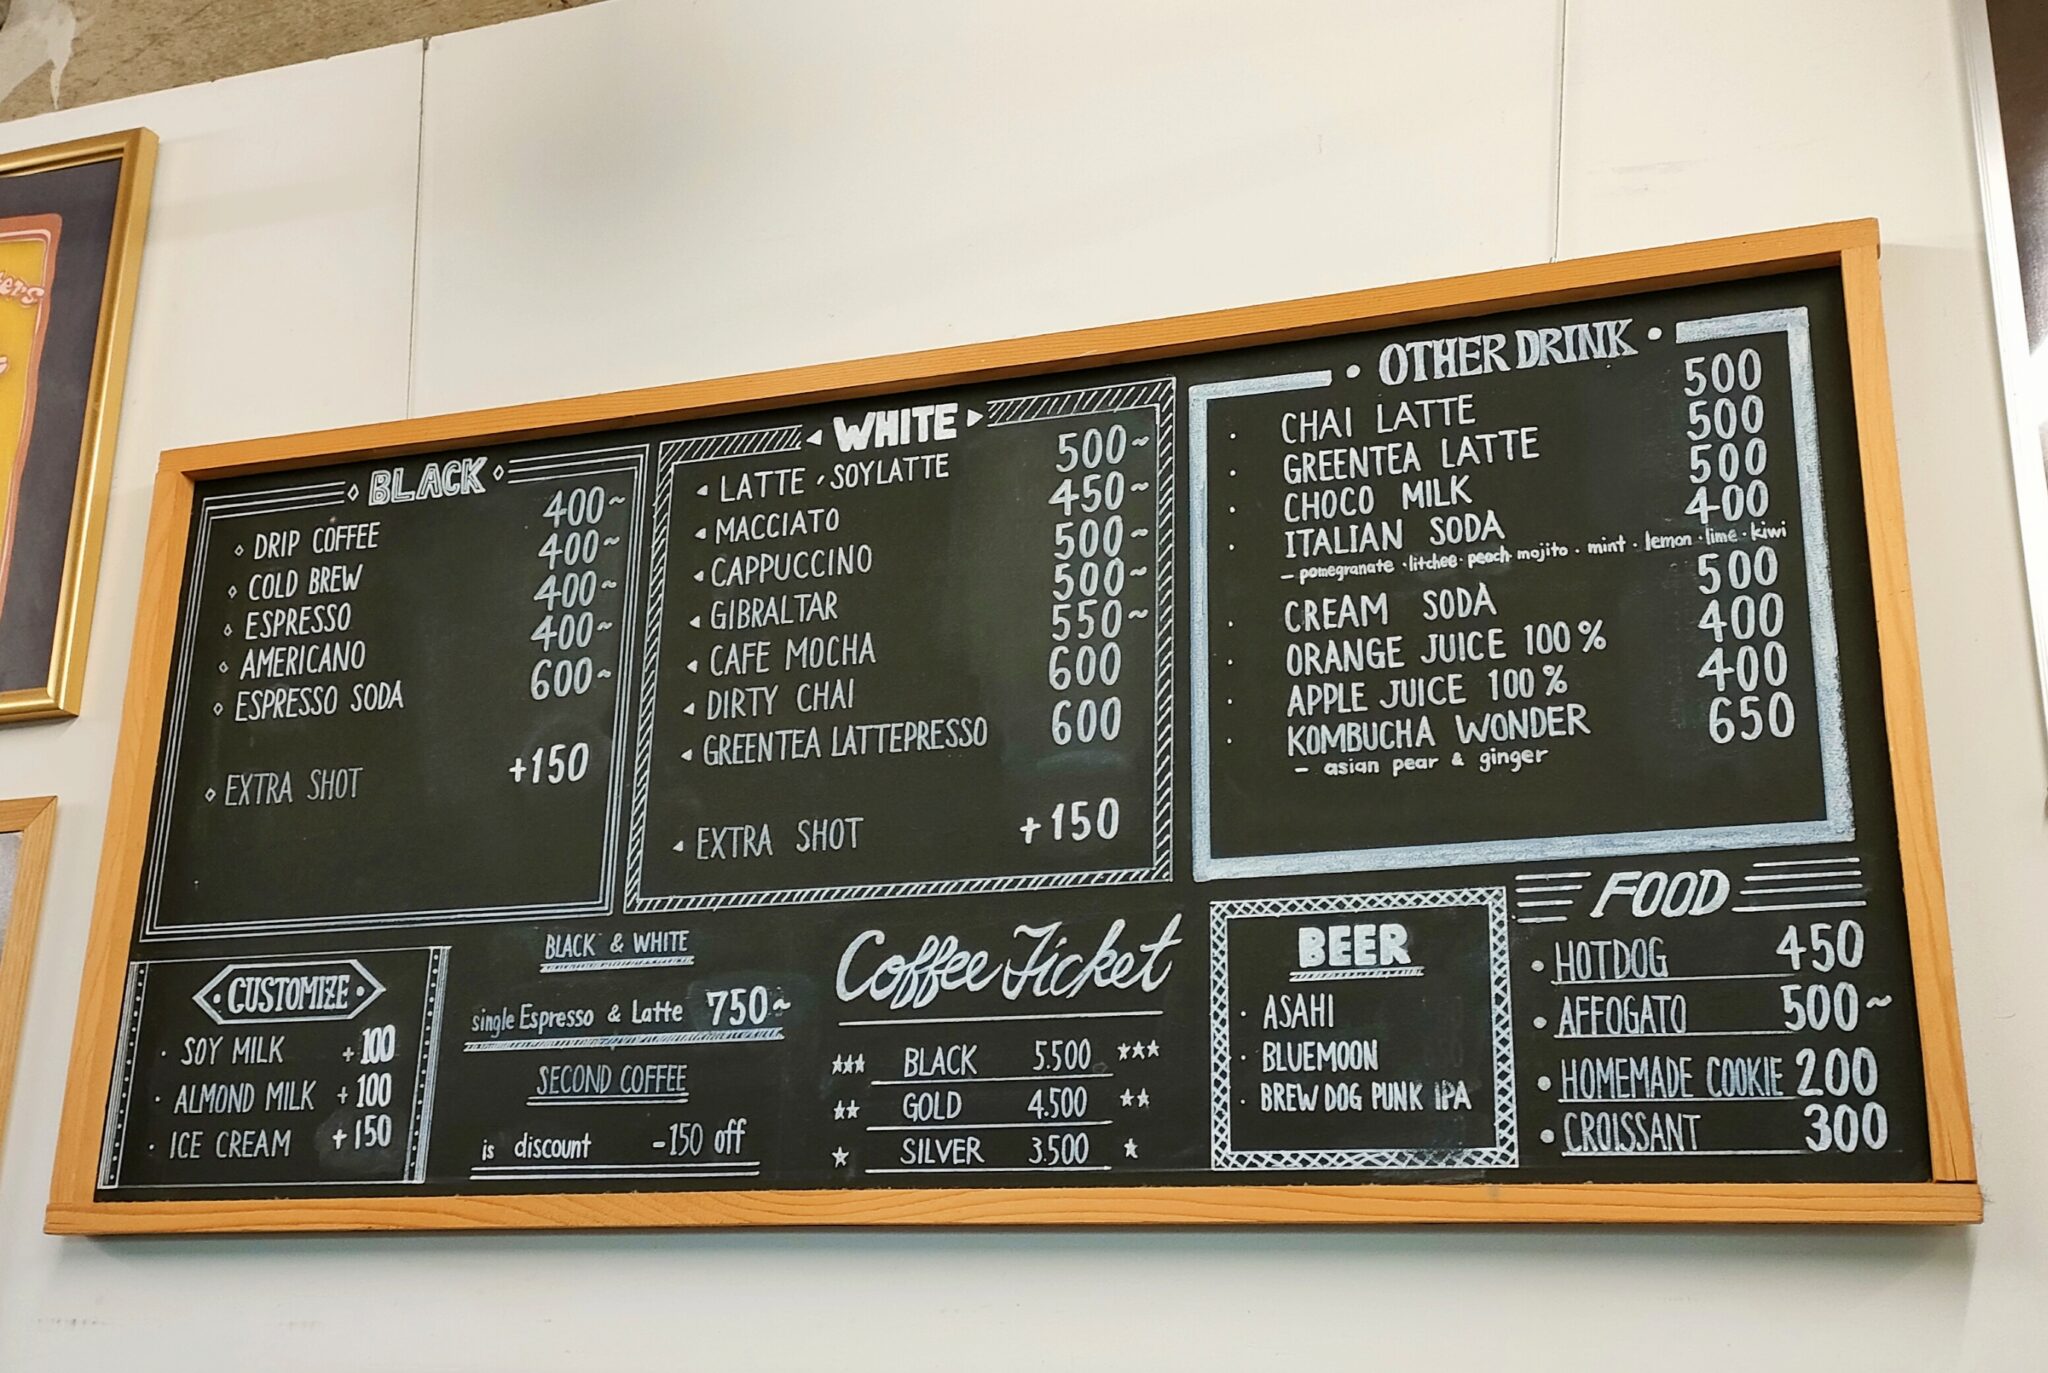 ers
BLACK
DRIP COFFEE 400~
COLD BREW 400~
ESPRESSO 400~
AMERICANO 400~
ESPRESSO SODA 600~
EXTRA SHOT +150
WHITE
LATTE ・ SOYLATTE 500~
MACCIATO 450~
CAPPUCCINO 500~
GIBRALTAR 500~
CAFE MOCHA 550~
DIRTY CHAI 600
GREENTEA LATTEPRESSO 600
EXTRA SHOT +150
• OTHER DRINK •
· CHAI LATTE 500
· GREENTEA LATTE 500
· CHOCO MILK 500
· ITALIAN SODA 400
- pomegranate · litchee · peach mojito · mint · lemon · lime · kiwi
· CREAM SODA 500
· ORANGE JUICE 100% 400
· APPLE JUICE 100% 400
· KOMBUCHA WONDER 650
- asian pear & ginger
CUSTOMIZE
· SOY MILK +100
· ALMOND MILK +100
· ICE CREAM +150
BLACK & WHITE
single Espresso & Latte 750~
SECOND COFFEE
is discount -150 off
Coffee Ticket
★★★ BLACK 5.500 ★★★
★★ GOLD 4.500 ★★
★ SILVER 3.500 ★
BEER
· ASAHI
· BLUEMOON
· BREW DOG PUNK IPA
FOOD
• HOTDOG 450
• AFFOGATO 500~
• HOMEMADE COOKIE 200
• CROISSANT 300